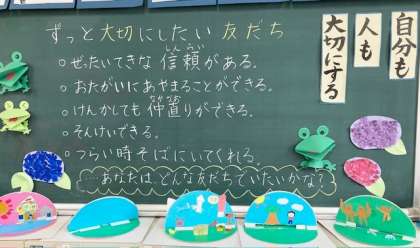 ずっと大切にしたい友だち
○ぜったいてきな信頼がある。
○おたがいにあやまることができる。
○けんかしても仲直りができる。
○そんけいできる。
○つらい時そばにいてくれる。
あなたはどんな友だちでいたいかな？
自分も
人も
大切にする